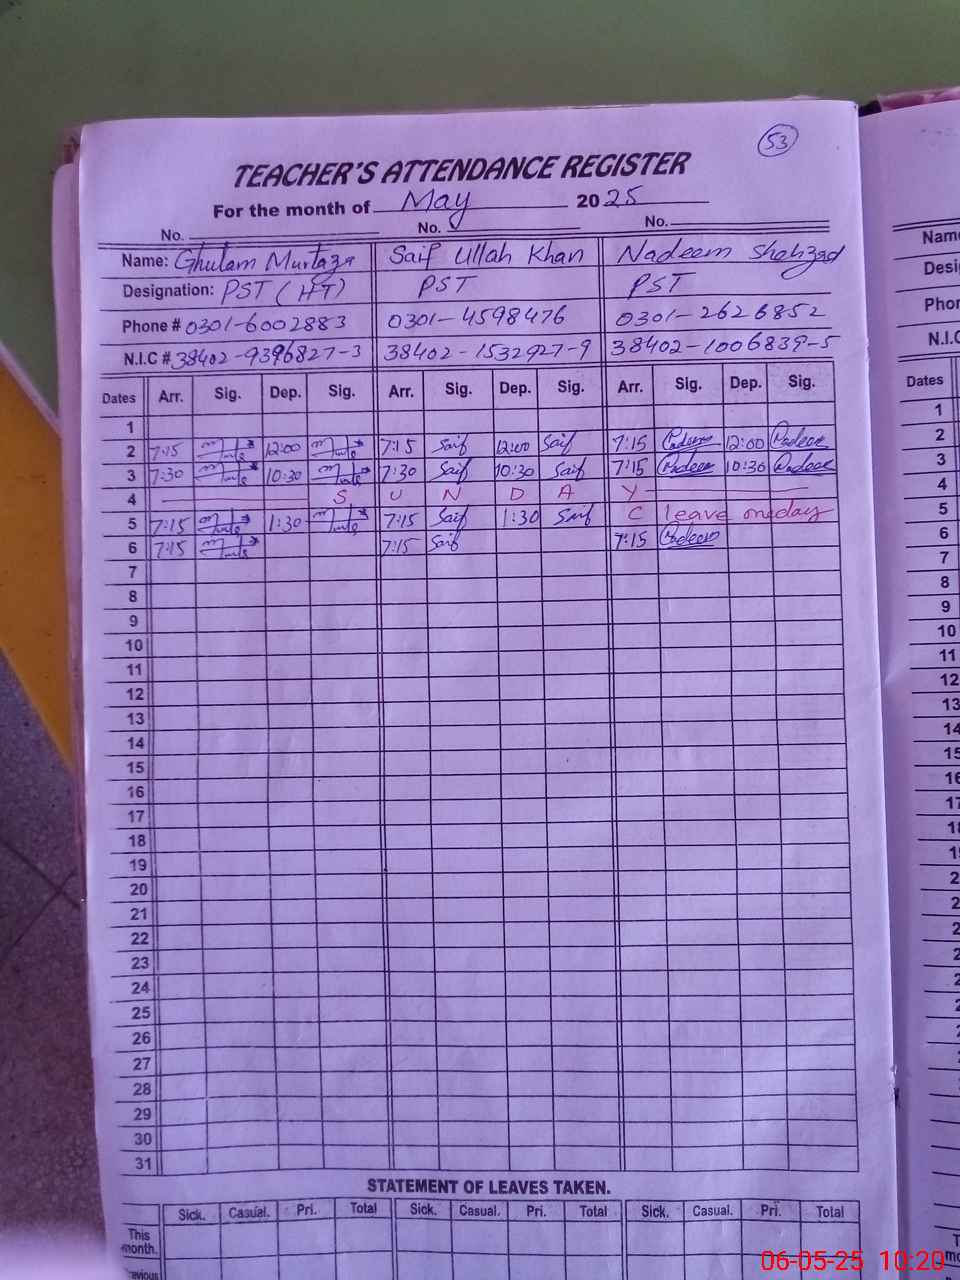 53
TEACHER'S ATTENDANCE REGISTER
For the month of May 2025
No. No. No.
Name: Ghulam Murtaza Saif Ullah Khan Nadeem Shehzad
Designation: PST (HT) PST PST
Phone # 0301-6002883 0301-4598476 0301-2626852
N.I.C # 38402-9396827-3 38402-1532927-9 38402-1006839-5
Dates Arr. Sig. Dep. Sig. Arr. Sig. Dep. Sig. Arr. Sig. Dep. Sig.
1
2 7:15 12:00 7:15 Saif 12:00 Saif 7:15 Nadeem 12:00 Nadeem
3 7:30 10:30 7:30 Saif 10:30 Saif 7:15 Nadeem 10:30 Nadeem
4 S U N D A Y
5 7:15 1:30 7:15 Saif 1:30 Saif C leave oneday
6 7:15 7:15 Saif 7:15 Nadeem
7
8
9
10
11
12
13
14
15
16
17
18
19
20
21
22
23
24
25
26
27
28
29
30
31
STATEMENT OF LEAVES TAKEN.
Sick. Casual. Pri. Total Sick. Casual. Pri. Total Sick. Casual. Pri. Total
This
month.
Name
Desi
Phor
N.I.C
Dates
1
2
3
4
5
6
7
8
9
10
11
12
13
14
15
16
17
18
06-05-25 10:20